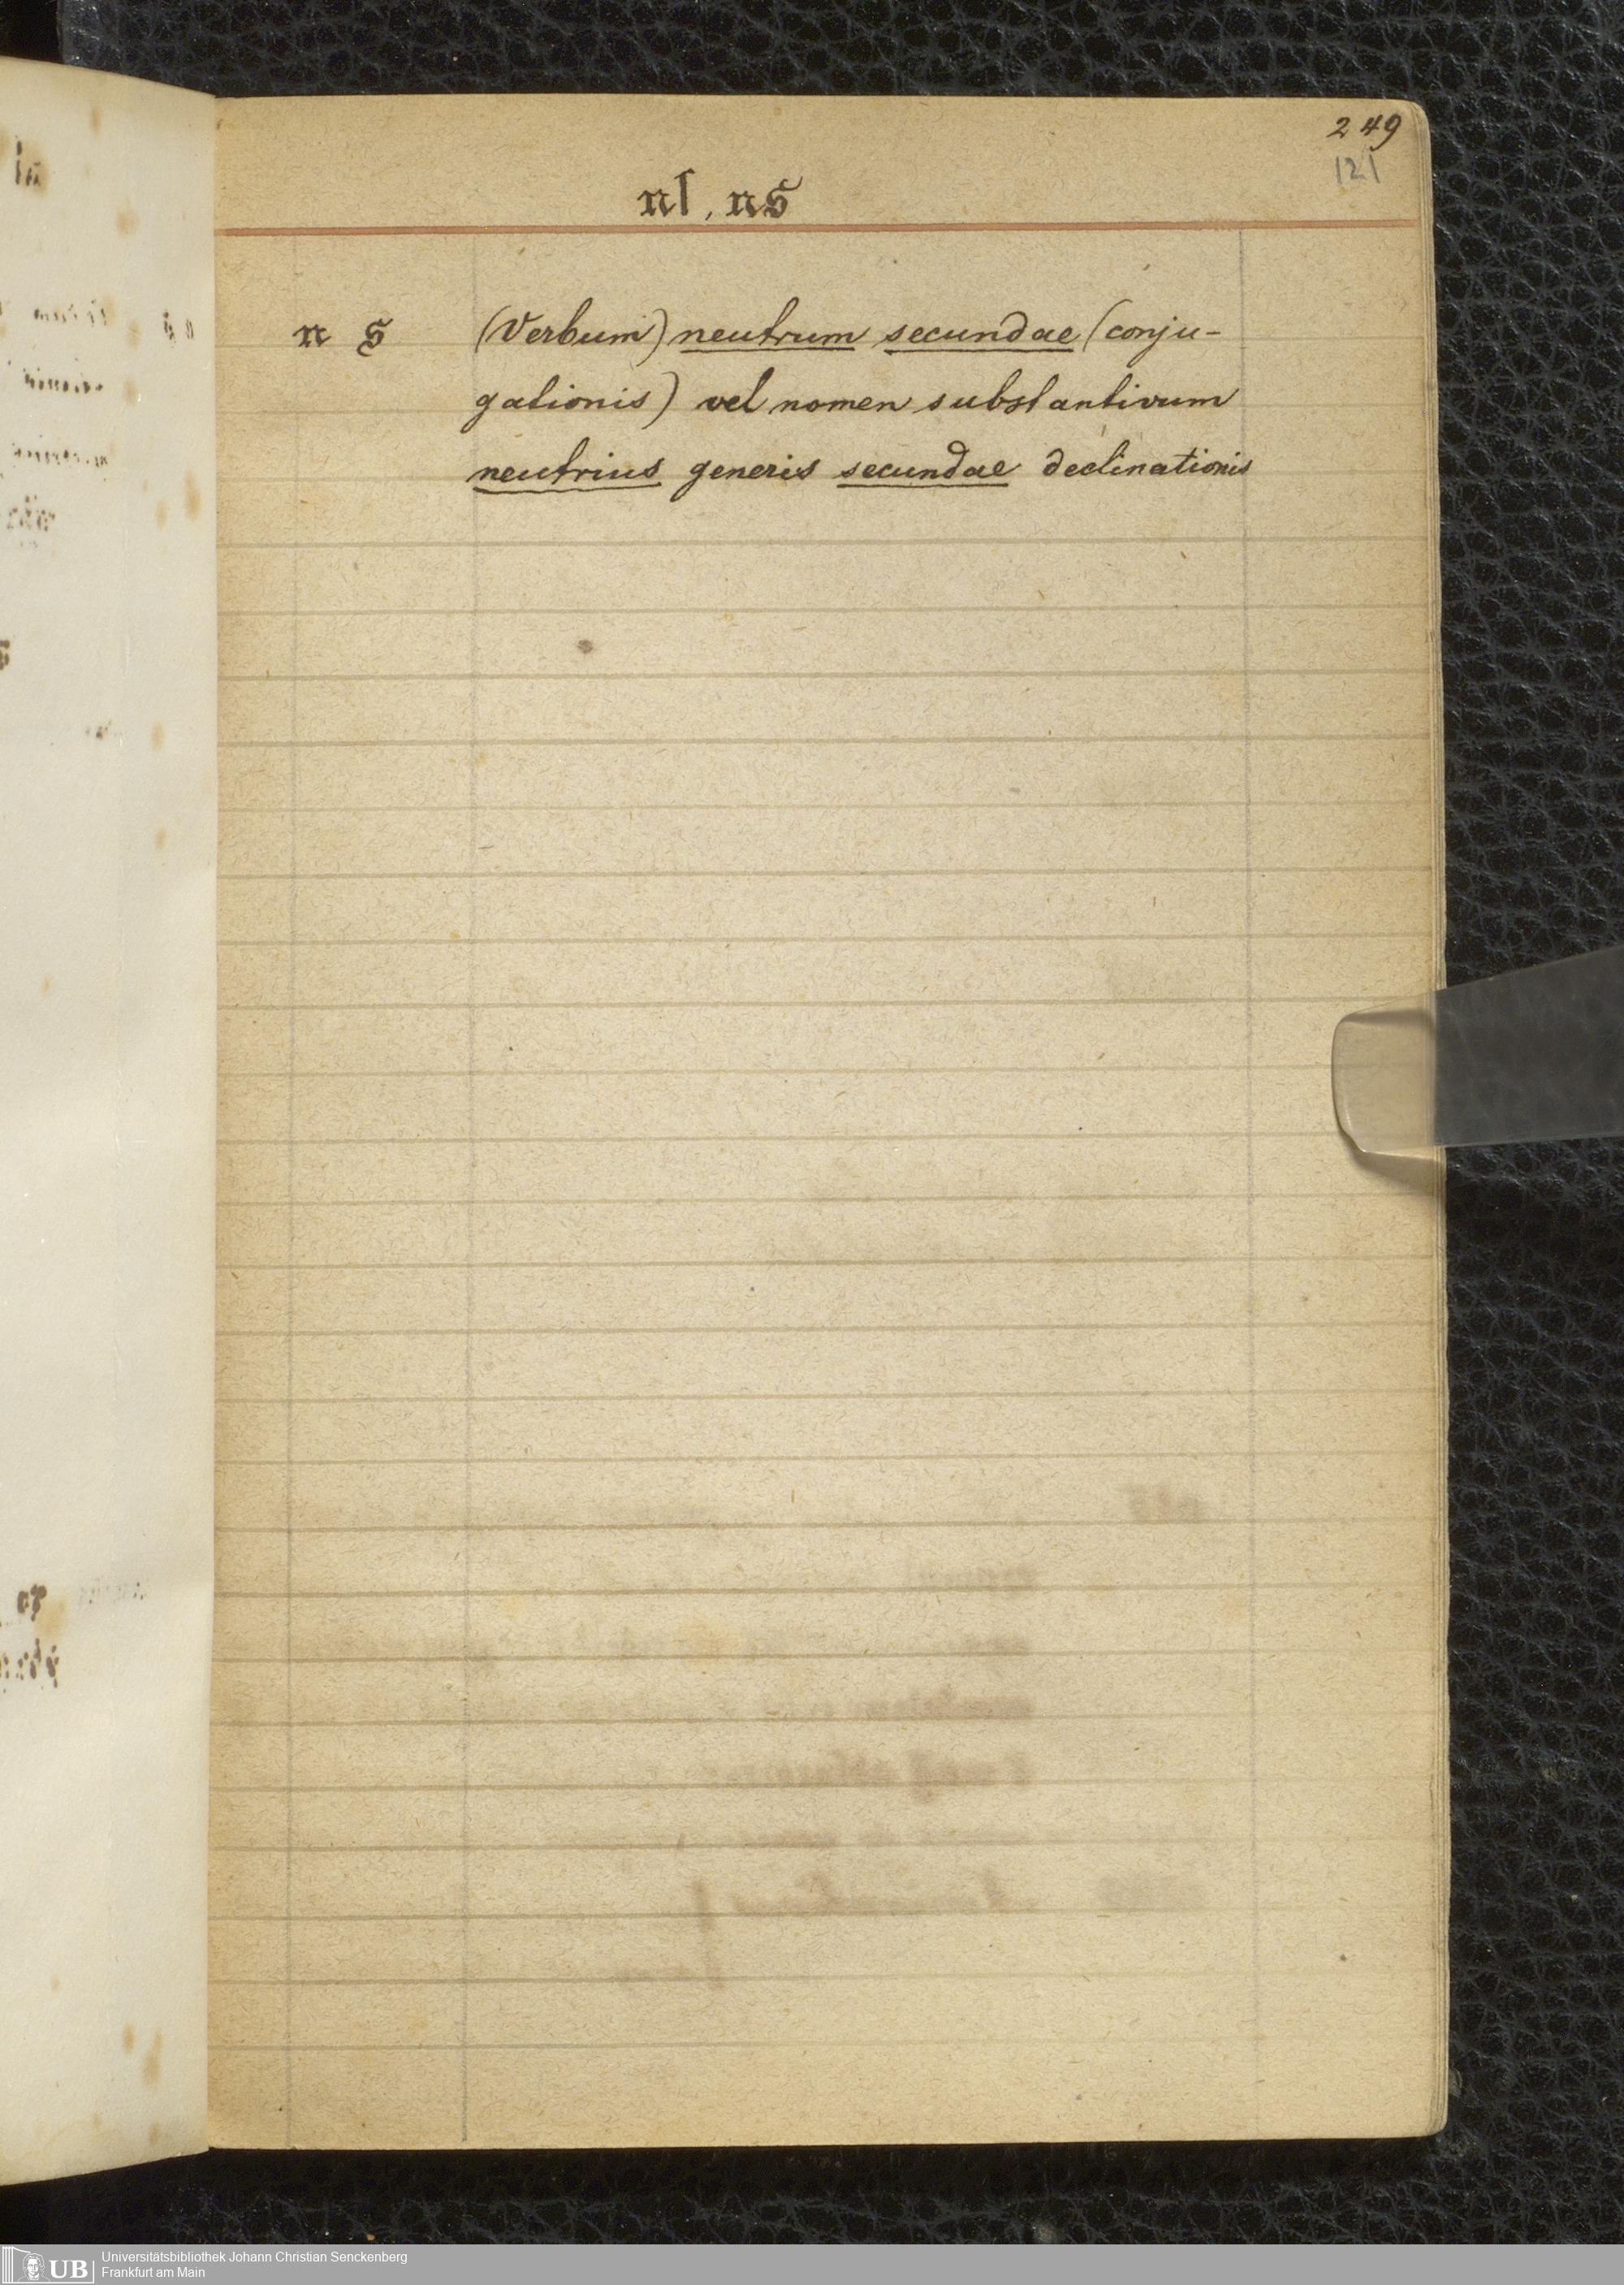 249
121
nſ, ns
n s (Verbum) neutrum secundae (conju-
gationis) vel nomen substantivum
neutrius generis secundae declinationis
UB Universitätsbibliothek Johann Christian Senckenberg
Frankfurt am Main